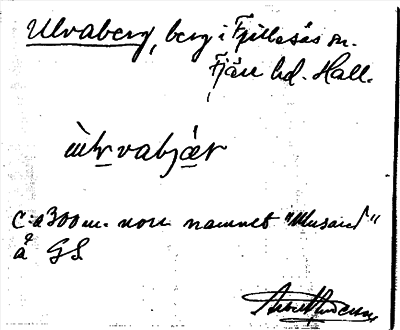 Ulvaberg, berg i Fjällesås sn.
Fjäre hd. Hall.
ùlvabjær
c:a 300 m. norr namnet "Musard"
å GS